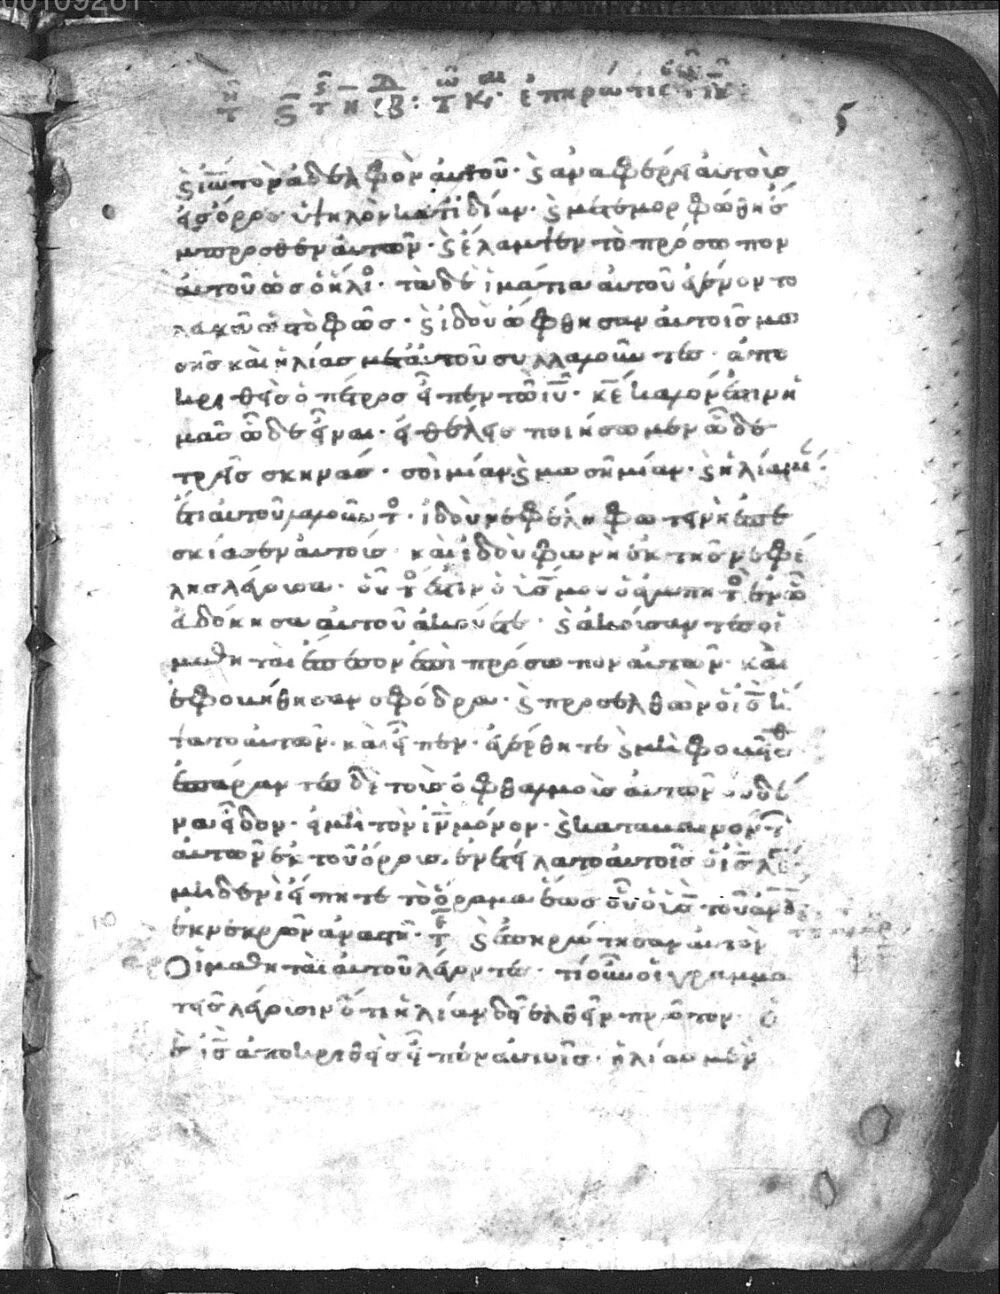 00109261
5
ϗ ἰω τὸν ἀδελφὸν αυτοῦ· ϗ ἀναφέρει αυτοὺσ
εἰσ όροσ ὑψηλὸν κατιδίαν· ϗ μετεμορφώθη έ
μπροσθεν αυτων· ϗ έλαμψεν τὸ πρόσωπον
αυτοῦ ὡσ ὁ ήλι· τὰ δὲ ἱμάτια αυτοῦ ἐγένοντο
λευκὰ ὡσ τὸ φῶσ· ϗ ἰδοὺ ώφθησαν αυτοῖσ μω
σῆσ καὶ ηλίασ μετ αυτοῦ συλλαλοῦντεσ· απο
κριθεὶσ ὁ πέτροσ εἶπεν τῶ ιυ· κε καλόν ἐστιν ἡ
μᾶσ ὧδε εἶναι· εἰ θέλεισ ποιήσωμεν ὧδε
τρεῖσ σκηνάσ· σοὶ μίαν ϗ μωσῆ μίαν· ϗ ηλία μι
έτι αυτοῦ λαλοῦντο· ἰδοὺ νεφέλη φωτεινὴ ἐπε
σκίασεν αυτούσ· καὶ ἰδοὺ φωνὴ ἐκ τῆσ νεφέ
λησ λέγουσα· οὗτο ἐστιν ὁ υσ μου ὁ αγαπητο ἐν ὧ
εὐδόκησα αυτοῦ ακούετε· ϗ ακούσαντεσ οἱ
μαθηταὶ έπεσον ἐπὶ πρόσωπον αυτων· καὶ
ἐφοβήθησαν σφόδρα· ϗ προσελθὼν ὁ ισ ή
ψατο αυτων· καὶ εἶπεν· ἐγέρθητε ϗ μὴ φοβεῖσθ
ἐπάραντεσ δὲ τοὺσ ὀφθαλμοὺσ αυτων ουδέ
να εἶδον· εἰ μὴ τὸν ιν μόνον· ϗ καταβαινόντ
αυτων ἐκ τοῦ όρουσ· ἐνετείλατο αυτοῖσ ὁ ισ λε
μηδενὶ είπητε τὸ όραμα έωσ οὗ ὁ υσ του αν
ἐκ νεκρῶν αναστῆ· ϗ ἐπηρώτησαν αυτὸν
Οἱ μαθηταὶ αυτοῦ λέγοντεσ· τί οὖν οἱ γραμμα
τεῖσ λέγουσιν ότι ηλίαν δεῖ ἐλθεῖν πρῶτον
ὁ ισ αποκριθεὶσ εἶπεν αυτοῖσ· ηλίασ μὲν